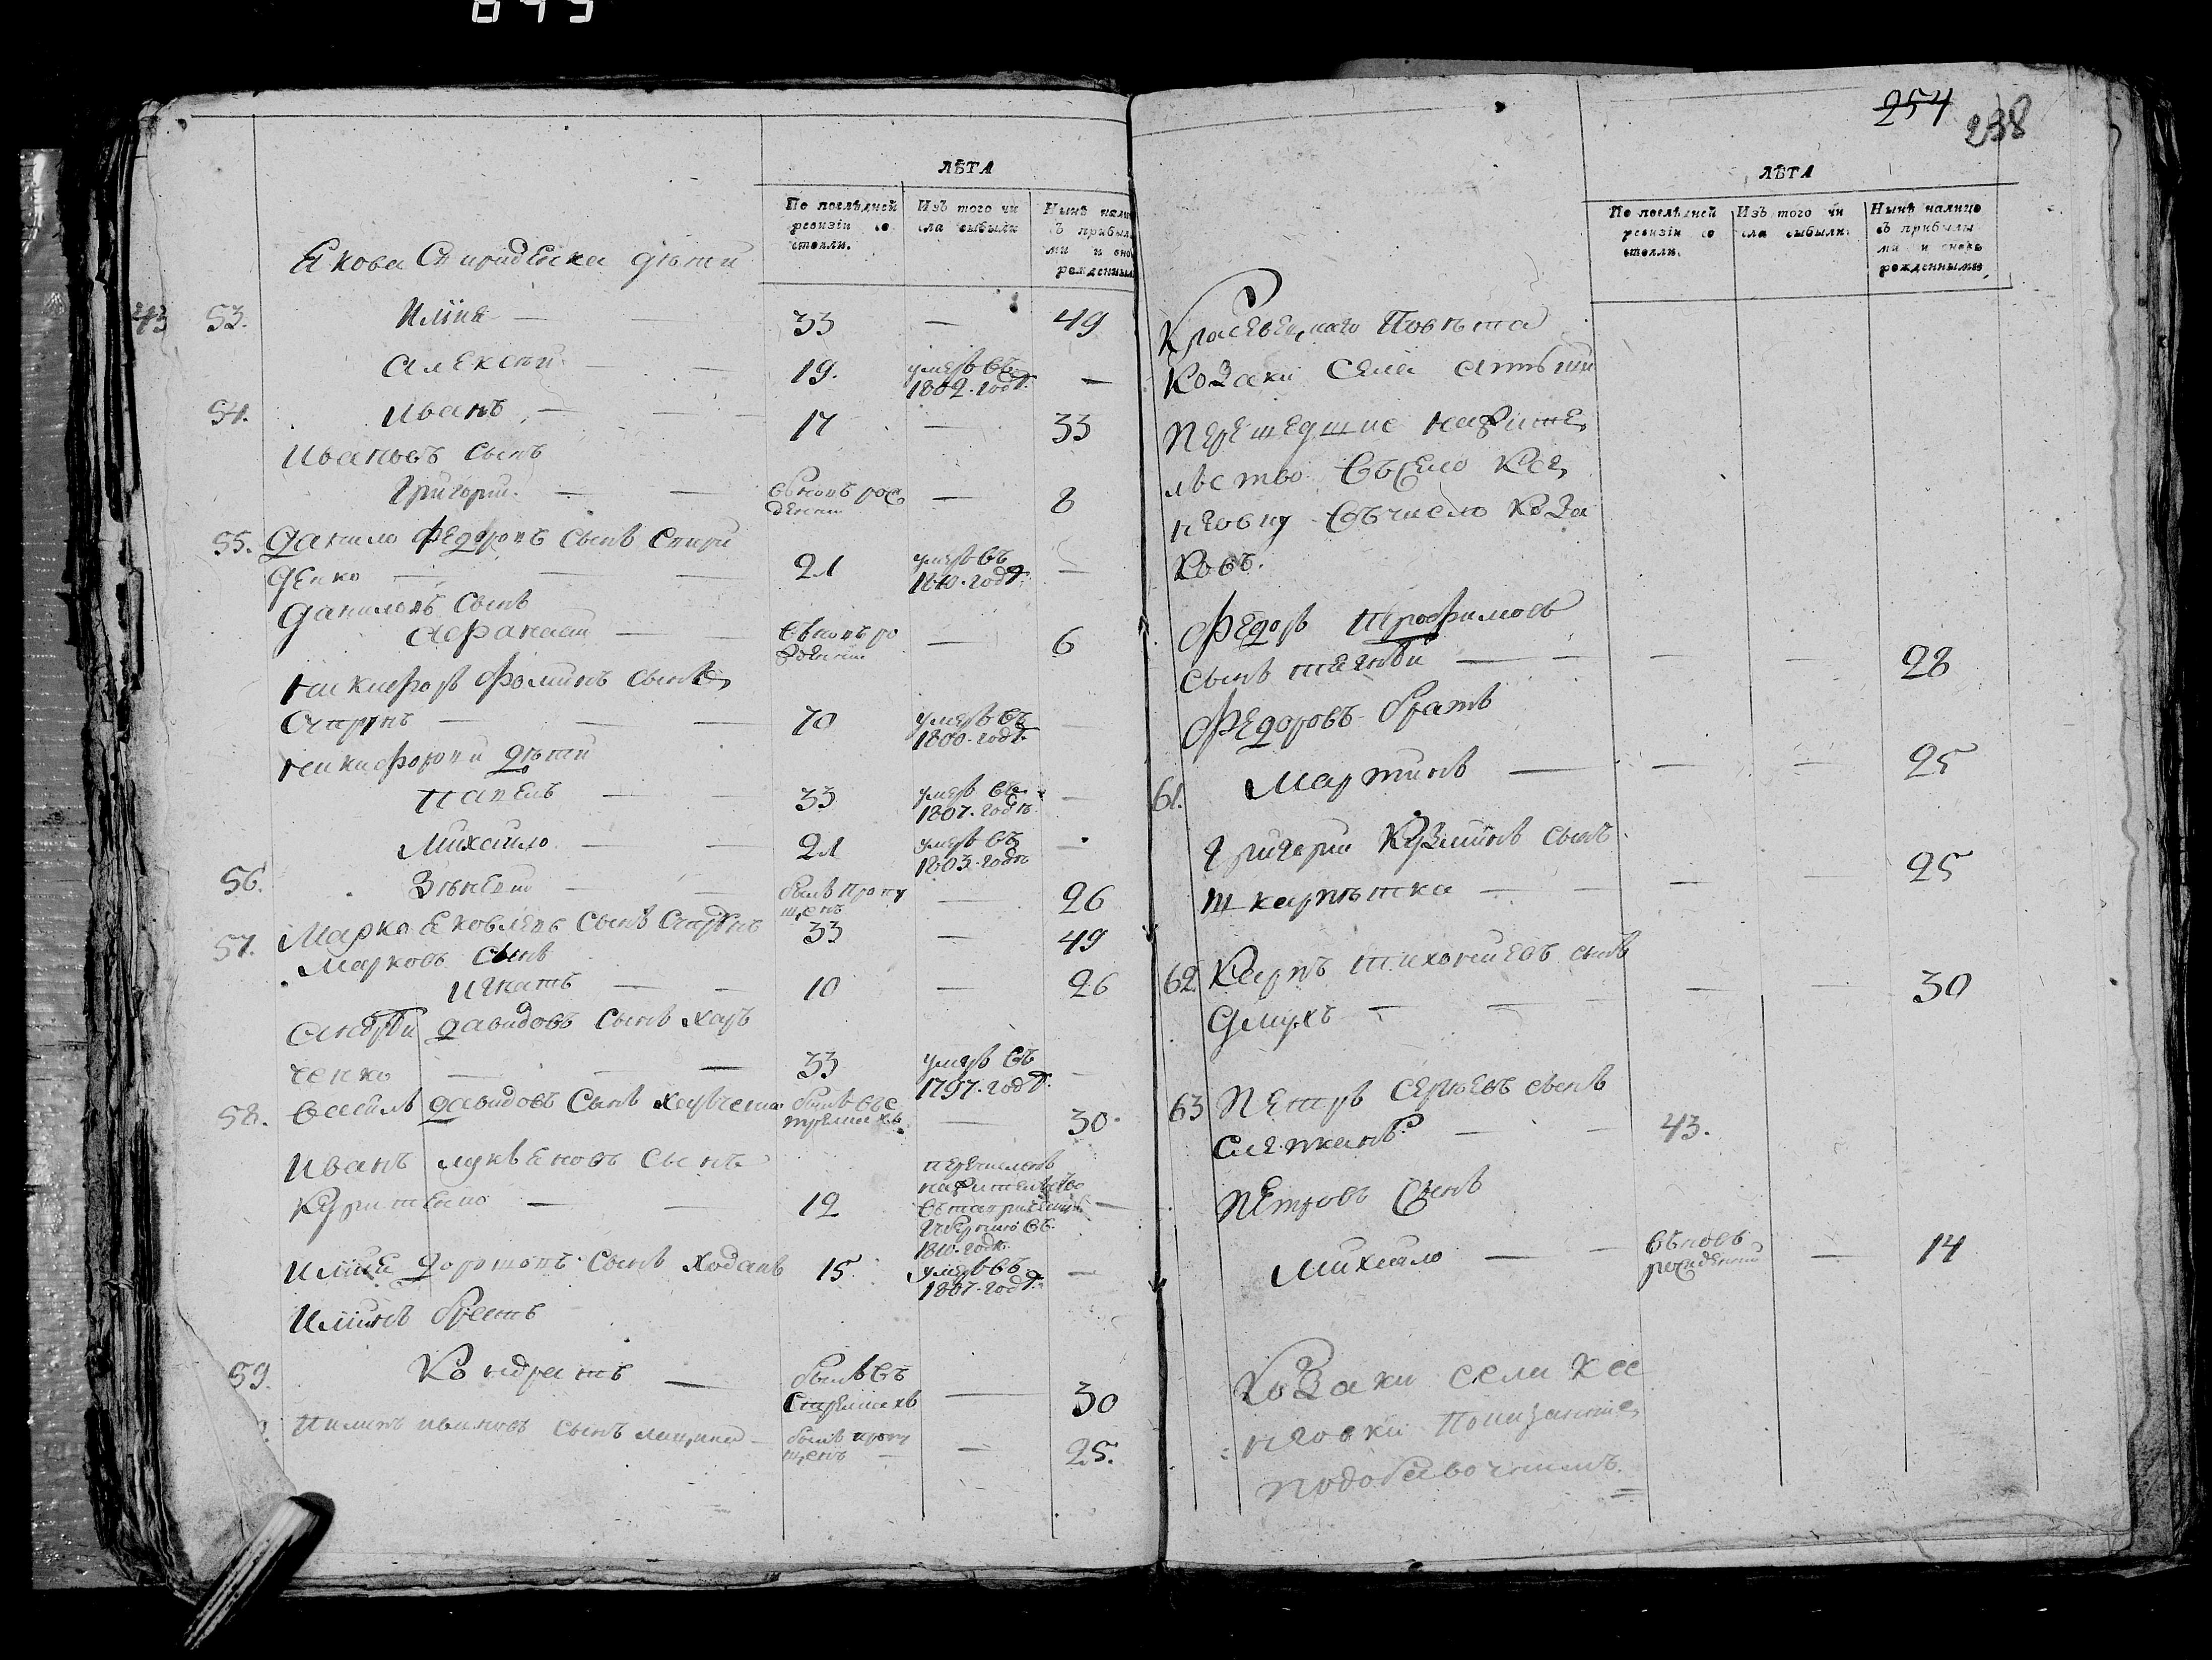 ЛѢТА
По послѣдней ревизіи со стояли.
Изъ того чи сла выбыли
Нынѣ нали съ прибыл ми и вно рожденным
Якова Спириденка дѣти
43 53. Илія — 33 — 49
Алексѣй — 19. умеръ въ 1802. годѣ. —
54. Иванъ — 17 — 33
Ивановъ сынъ
Григорій — вновь рож денни — 8
55. Данило Федоровъ сынъ Спири
денко — 21 умеръ въ 1810. годѣ. —
Даниловъ сынъ
Афанасій — вновь ро жденни — 6
Никифоръ Фоминъ сынъ
Супрунъ — 70 умеръ въ 1800. годѣ. —
Никифоровы дѣти
Павелъ — 33 умеръ въ 1807. годѣ. —
Михайло — 21 умеръ въ 1803. годѣ —
56. Зѣновій — былъ пропу щенъ — 26
57. Марко Яковлевъ сынъ Супрунъ 33 — 49
Марковъ сынъ
Игнатъ — 10 — 26
Андрѣй Давидовъ сынъ Харъ
ченко — 33 умеръ въ 1797. годѣ. —
58. Василь Давидовъ сынъ Харченко былъ въ стрелкахъ — 30.
Иванъ Лукьяновъ сынъ
— 12 перечисленъ на жителство въ таврическую губернію въ 1810. годѣ —
Илія сынъ Ходакъ 15 умеръ въ 1807. годѣ. —
Иліинъ братъ
59. Кондратъ — былъ въ Стрелкахъ — 30
Пилипъ Ивановъ сынъ — былъ пропу щенъ — 25.
254
238
ЛѢТА
По послѣдней ревизіи со стояли.
Изъ того чи сла выбыли
Нынѣ налицо съ прибылы ми и вновь рожденными,
Повѣта
Козаки села
перешедшие на жите,
льство въ село Кле,
новку въ число коза
ковъ.
Федоръ Трофимовъ
сынъ — — — 28
Федоровъ братъ
61. Мартинъ — — — 25
Григорій Кузминъ сынъ
Шкарпѣтка — — — 25
62. Карпъ Тихоніевъ сынъ
— — — 30
63 Петръ Сергіевъ сынъ
— 43.
Петровъ сынъ
Михайло — вновь рожденни — 14
Козаки села Кле
новки показанние
подобавочнимъ.